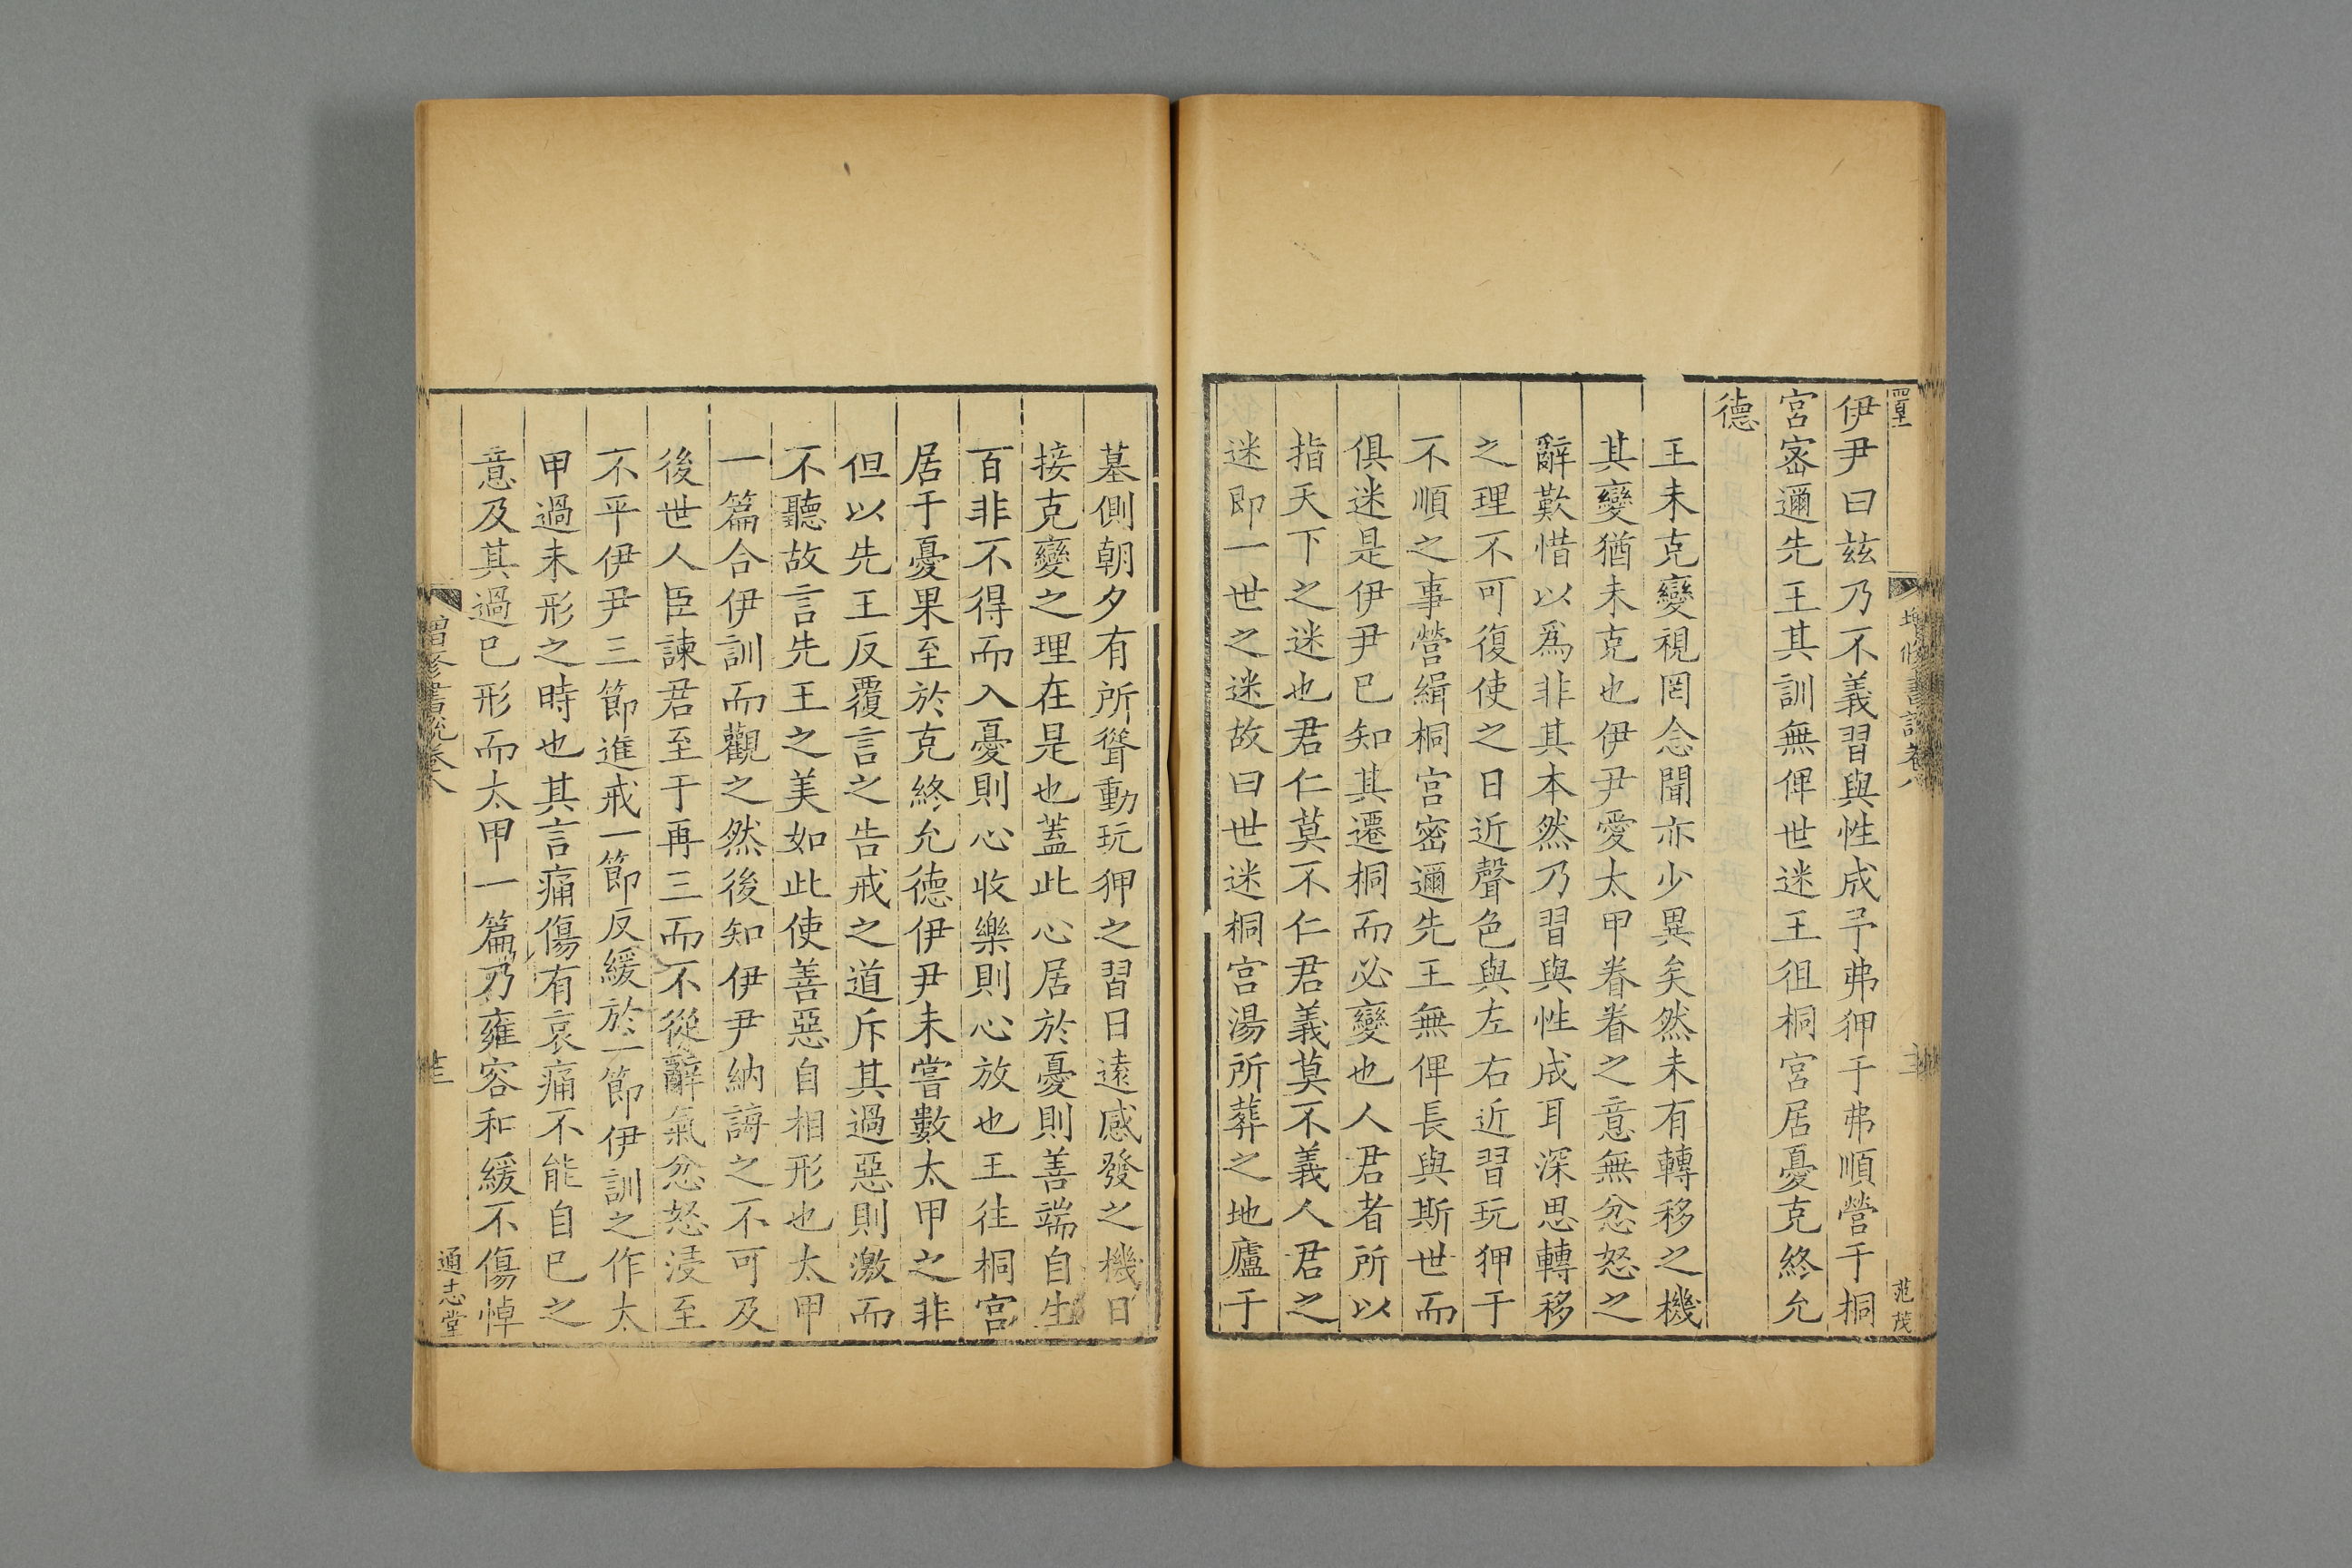 伊尹曰玆乃不義習與性成予弗狎于弗順營于桐
宮宻邇先王其訓無俾世迷王徂桐宮居憂克終允
德
王未克變視罔念聞亦少異矣然未有轉移之機
其變猶未克也伊尹愛太甲眷眷之意無忿怒之
辭歎惜以爲非其本然乃習與性成耳深思轉移
之理不可復使之日近聲色與左右近習玩狎于
不順之事營緝桐宮密邇先王無俾長與斯世而
俱迷是伊尹已知其遷桐而必變也人君者所以
指天下之迷也君仁莫不仁君義莫不義人君之
迷即一世之迷故曰世迷桐宮湯所葬之地廬于
范茂
墓側朝夕有所聳動玩狎之習日遠感發之機日
接克變之理在是也蓋此心居於憂則善端自生
百非不得而入憂則心收樂則心放也王往桐宮
居于憂果至於克終允德伊尹未嘗數太甲之非
但以先王反覆言之告戒之道斥其過惡則激而
不聽故言先王之美如此使善惡自相形也太甲
一篇合伊訓而觀之然後知伊尹納誨之不可及
後世人臣諫君至于再三而不從辭氣忿怒浸至
不平伊尹三節進戒一節反緩於一節伊訓之作太
甲過未形之時也其言痛傷有哀痛不能自已之
意及其過已形而太甲一篇乃雍容和緩不傷悼
增修書說卷八
通志堂